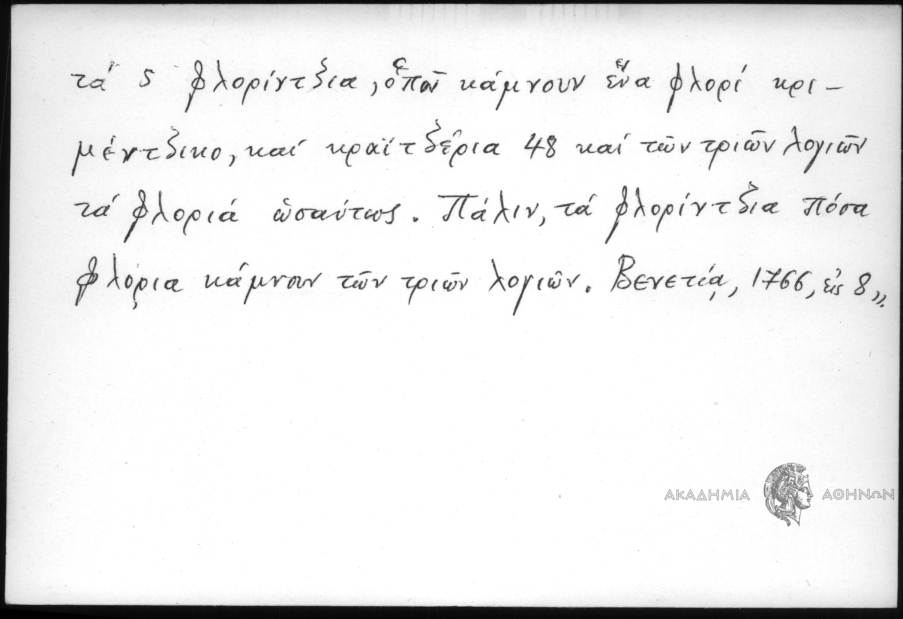 τά 5 φλορίντζια, ὁποῦ κάμνουν ἕνα φλορί κρι-
μέντζικο, καί κραϊτζέρια 48 καί τῶν τριῶν λογιῶν
τά φλοριά ὡσαύτως. Πάλιν, τά φλορίντζια πόσα
φλόρια κάμνουν τῶν τριῶν λογιῶν. Βενετίᾳ, 1766, εἰς 8,,.
ΑΚΑΔΗΜΙΑ ΑΘΗΝΩΝ